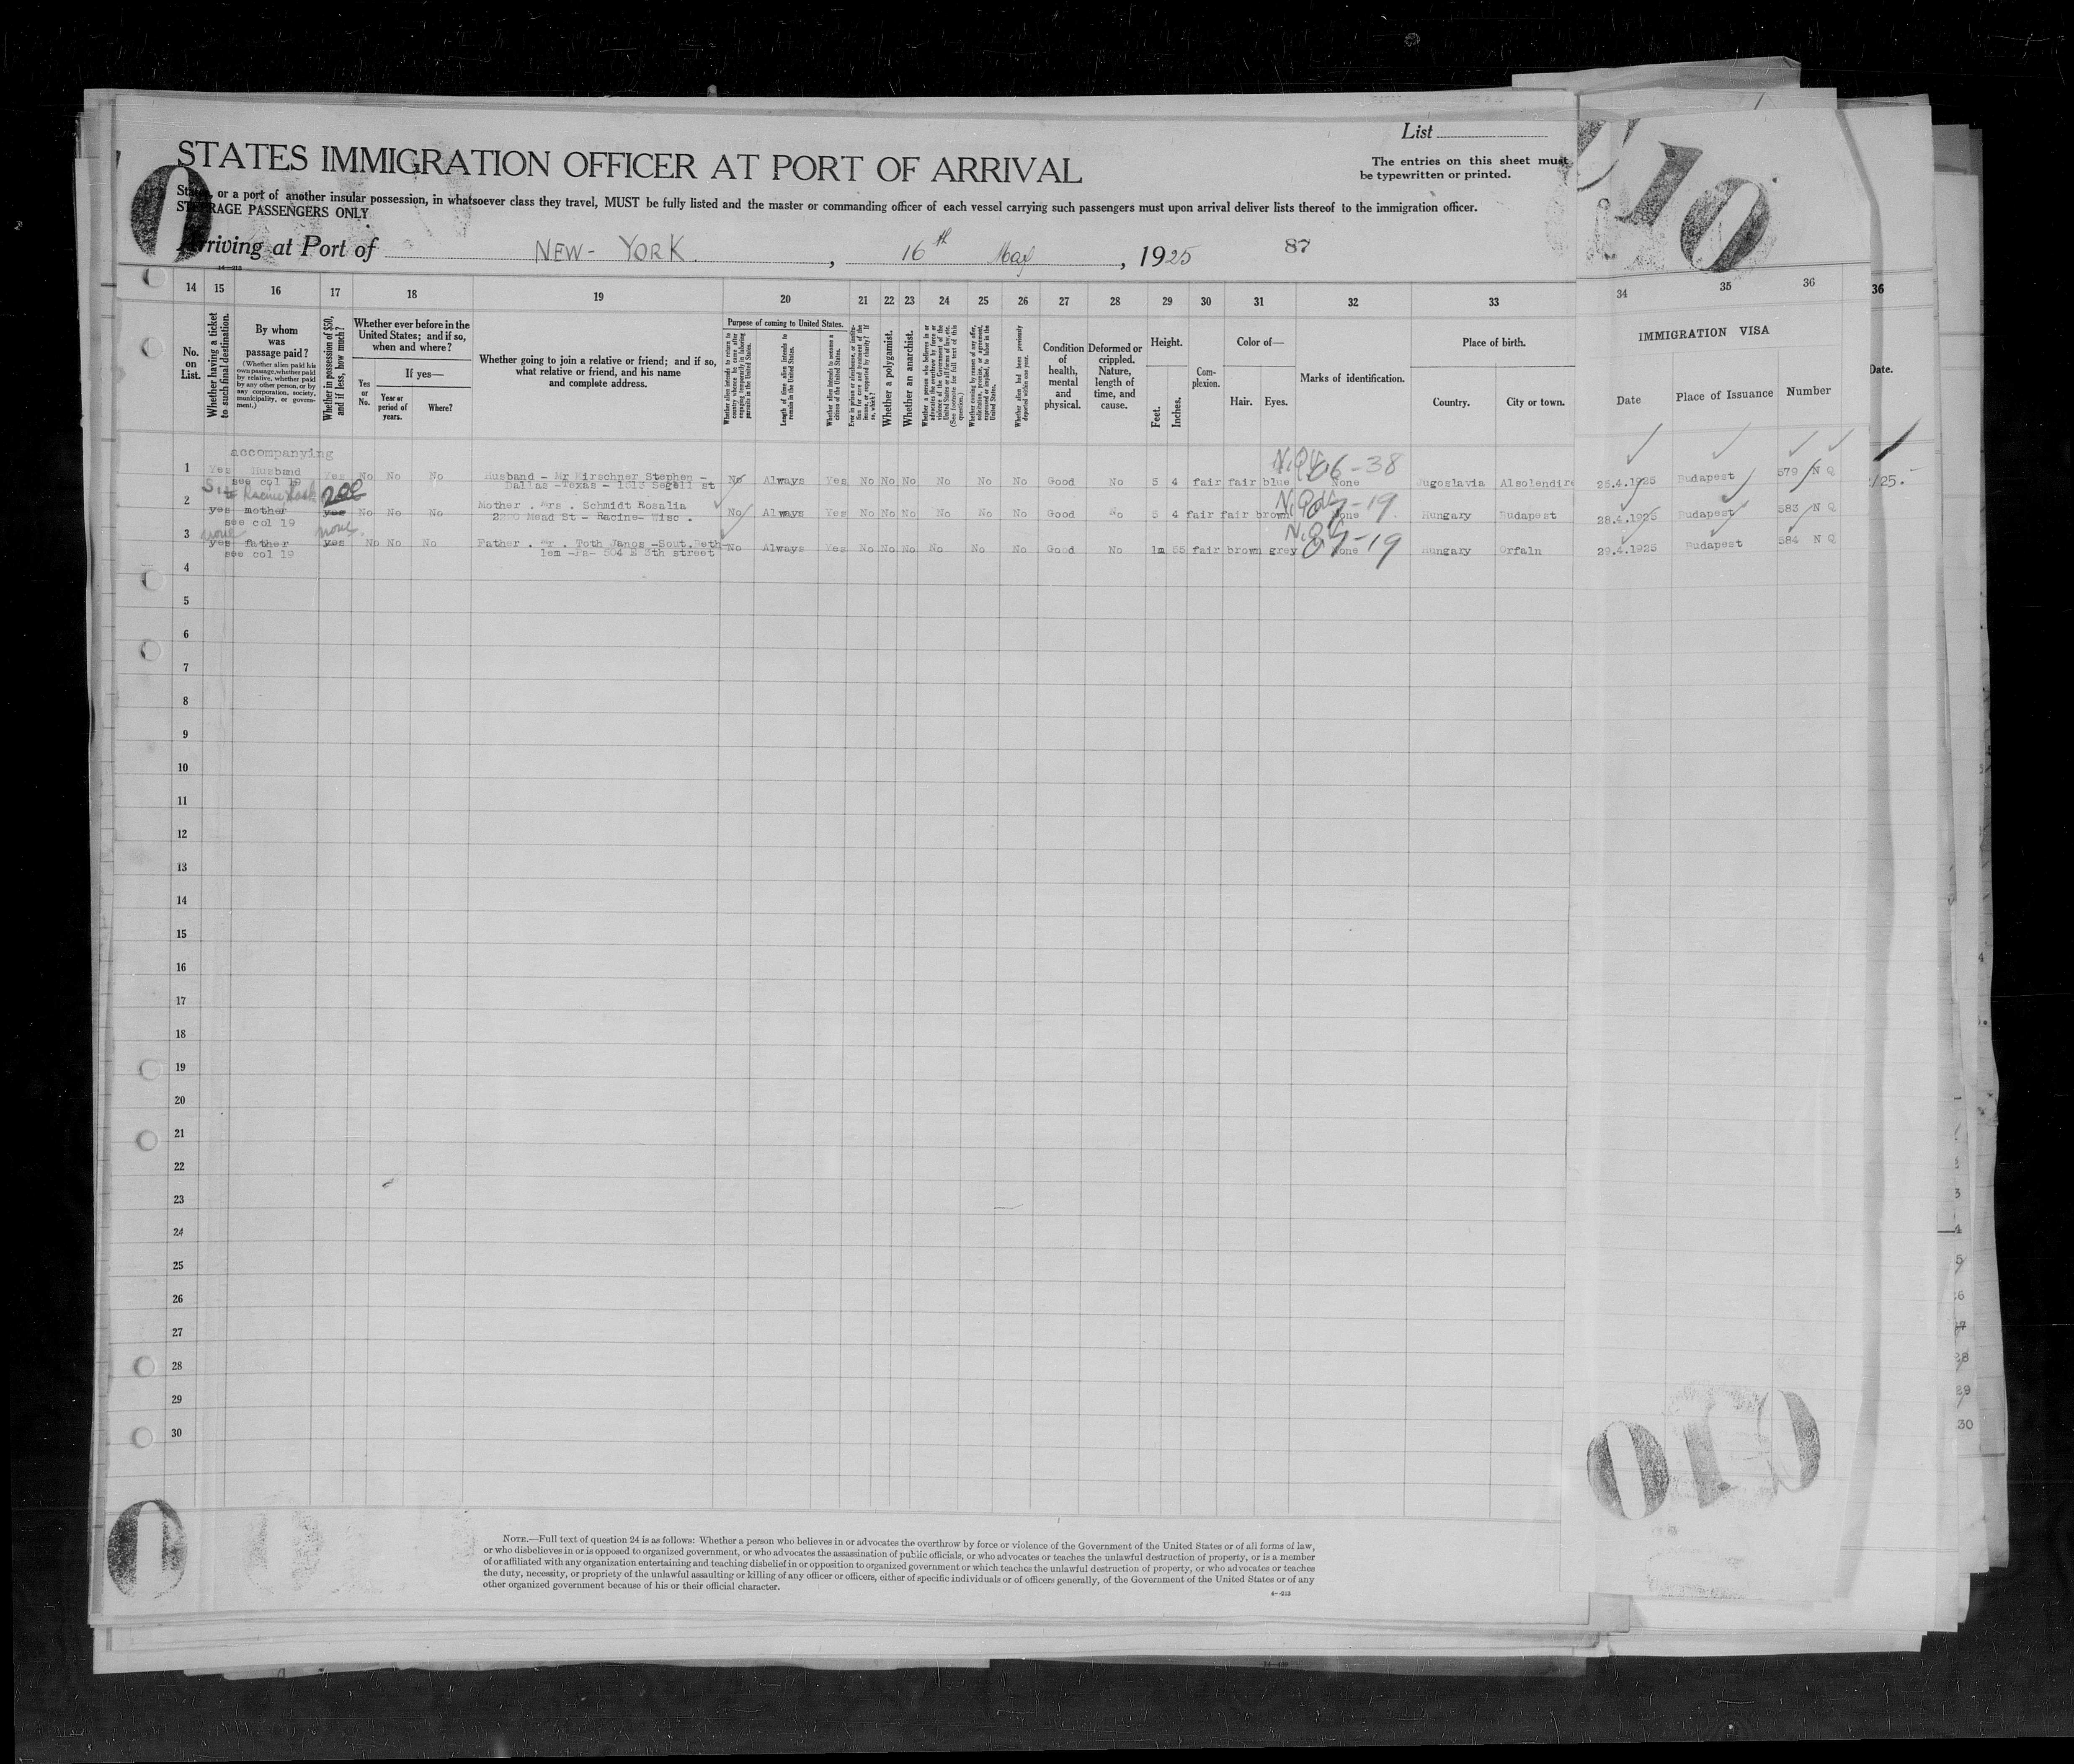 List
STATES IMMIGRATION OFFICER AT PORT OF ARRIVAL
The entries on this sheet must
be typewritten or printed.
States, or a port of another insular possession, in whatsoever class they travel, MUST be fully listed and the master or commanding officer of each vessel carrying such passengers must upon arrival deliver lists thereof to the immigration officer.
STEERAGE PASSENGERS ONLY
Arriving at Port of NEW-YORK. , 16th May , 1925 87
14 15 16 17 18 19 20 21 22 23 24 25 26 27 28 29 30 31 32 33 34 35 36 36
No. on List.
Whether having a ticket to such final destination.
By whom was passage paid?
(Whether alien paid his own passage, whether paid by relative, whether paid by any other person, or by any corporation, society, municipality, or government.)
Whether in possession of $50, and if less, how much?
Whether ever before in the United States; and if so, when and where?
Yes or No.
If yes—
Year or period of years.
Where?
Whether going to join a relative or friend; and if so, what relative or friend, and his name and complete address.
Purpose of coming to United States.
Length of time alien intends to remain in the United States.
Whether alien intends to become a citizen of the United States.
Whether a polygamist.
Whether an anarchist.
Whether alien had been previously deported within one year.
Condition of health, mental and physical.
Deformed or crippled. Nature, length of time, and cause.
Height.
Feet.
Inches.
Complexion.
Color of—
Hair.
Eyes.
Marks of identification.
Place of birth.
Country.
City or town.
IMMIGRATION VISA
Date
Place of Issuance
Number
Date.
accompanying
1 Yes Husband Yes No No No Husband - Mr Kirschner Stephen - No Always Yes No No No No No No Good No 5 4 fair fair blue None Jugoslavia Alsolendire 25.4.1925 Budapest 579 N Q /25.-
see col 19 Dallas -Texas - st
06-38
2 yes mother yes No No No Mother . Mrs . Schmidt Rosalia No Always Yes No No No No No No Good No 5 4 fair fair brown None Hungary Budapest 28.4.1925 Budapest 583 N Q
see col 19 Mead St - Racine- Wisc .
200
07-19
3 yes father yes No No No Father . Mr . Toth Janos -Sout.Beth No Always Yes No No No No No No Good No 1m 55 fair brown grey None Hungary Orfaln 29.4.1925 Budapest 584 N Q
see col 19 lem -Pa- 504 E 5th street
none none.
07-19
4
5
6
7
8
9
10
11
12
13
14
15
16
17
18
19
20
21
22
23
24
25
26
27
28
29
30
NOTE.—Full text of question 24 is as follows: Whether a person who believes in or advocates the overthrow by force or violence of the Government of the United States or of all forms of law,
or who disbelieves in or is opposed to organized government, or who advocates the assassination of public officials, or who advocates or teaches the unlawful destruction of property, or is a member
of or affiliated with any organization entertaining and teaching disbelief in or opposition to organized government or which teaches the unlawful destruction of property, or who advocates or teaches
the duty, necessity, or propriety of the unlawful assaulting or killing of any officer or officers, either of specific individuals or of officers generally, of the Government of the United States or of any
other organized government because of his or their official character.